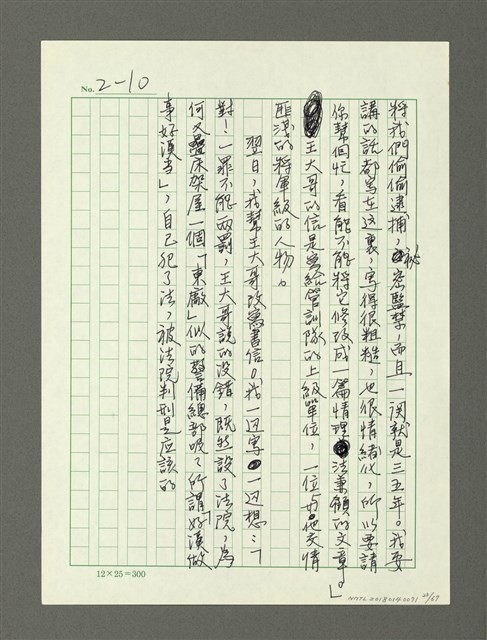 No. 2-10
將我們偷偷逮捕，秘密監禁，而且一關就是三五年。我要
講的話都寫在這裏，寫得很粗糙，也很情緒化，所以要請
你幫個忙，看能不能將它修改成一篇情理法兼顧的文章。」
王大哥的信是要給管訓隊的上級單位，一位與他交情
匪淺的將軍級的人物。
翌日，我幫王大哥改寫書信。我一边寫一边想：「
對！一罪不能兩罰，王大哥說的没錯，既然設了法院，為
何又疊床架屋一個「東廠」似的警備總部呢？所謂「好漢做
事好漢當」，自己犯了法，被法院判刑是應該的
12×25=300
NMTL20080140071